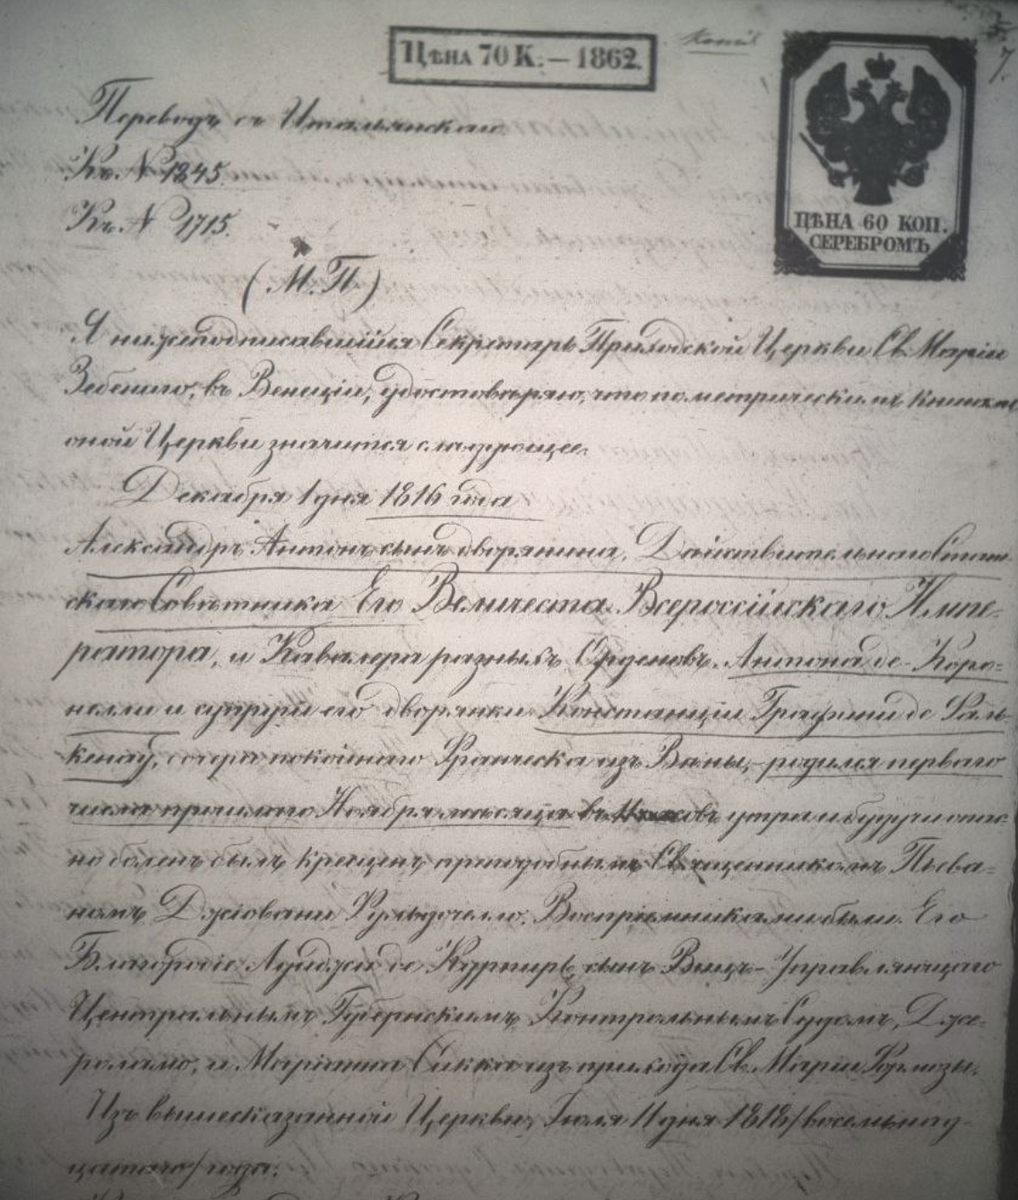 Цѣна 70 К. — 1862.
Копія
7.
ЦѢНА 60 КОП.
СЕРЕБРОМЪ
Переводъ съ Итальянскаго
Къ № 1845.
Къ № 1715.
(М. П.)
Я нижеподписавшійся Секретарь Приходской Церкви Св. Маріи
Зебениго, въ Венеціи, удостовѣряю, что по метрическимъ книгамъ
оной Церкви значится слѣдующее.
Декабря 1 дня 1816 года
Александръ Антонъ сынъ дворянина, Дѣйствительнаго Стат-
скаго Совѣтника Его Величества Всероссійскаго Импе-
ратора, и Кавалера разныхъ Орденовъ, Антона де-Коро-
нелли и супруги его дворянки Констанціи Графини де
кенау, покойнаго Франческа изъ родился перваго
числа прошлаго Ноября мѣсяца въ утра и будучи опас-
но боленъ былъ крещенъ преподобнымъ Священникомъ Пьева-
номъ Джіовани Воспріемниками были Его
Благородіе де сынъ Вице-Управляющаго
Центральнымъ Губернскимъ Контрольнымъ Судомъ, Дже-
роламо, и Маріанна изъ прихода Св. Маріи Формозы.
Изъ вышесказанной Церкви, Іюля 11 дня 1818 /восемьнад-
цатаго/ года.